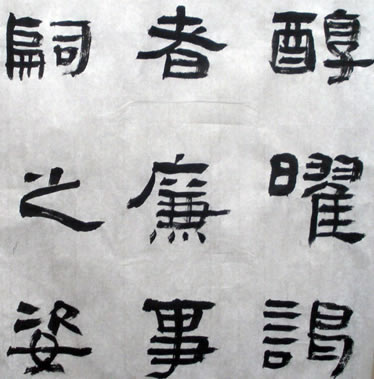 醇曜謁
者廉事
嗣之姿